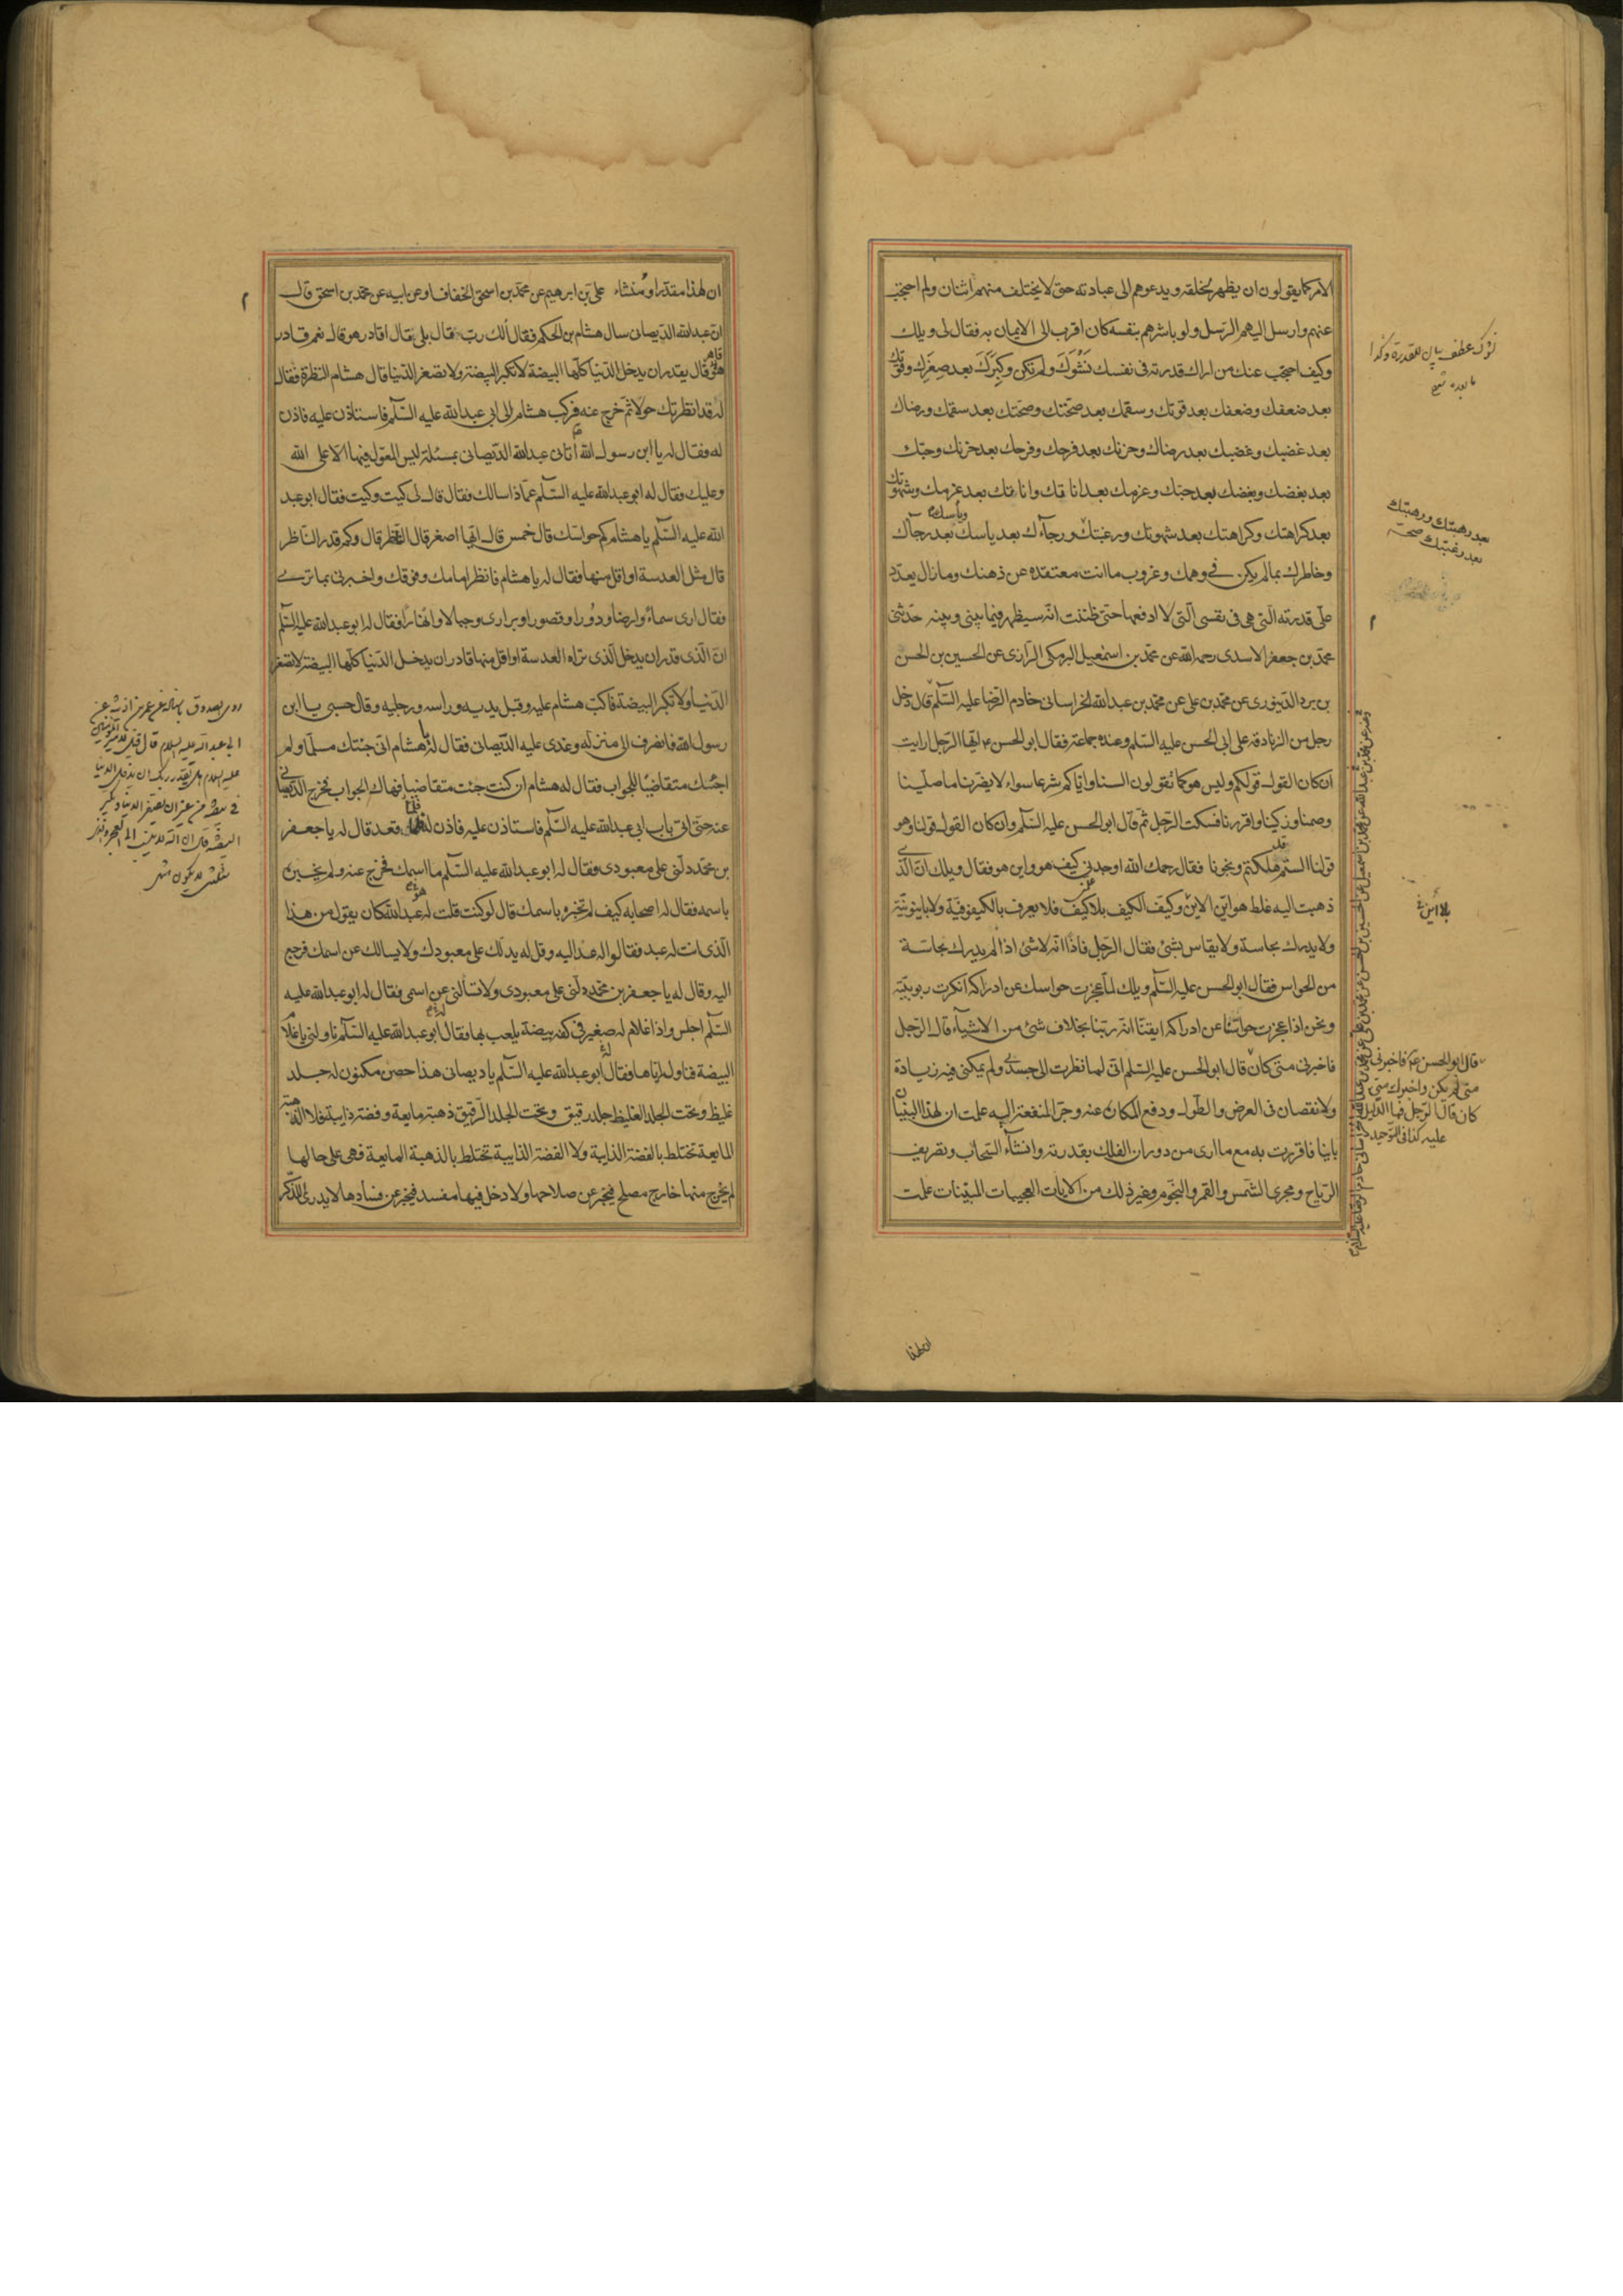 الامر كما يقولون ان يظهر لخلقه ويدعوهم الى عبادته حتى لا يختلف منهم اثنان ولم احتجب
عنهم وارسل اليهم الرسل ولو باشرهم بنفسه كان اقرب الى الايمان به فقال لى ويلك
وكيف احتجب عنك من اراك قدرته فى نفسك نشوك ولم تكن وكبرك بعد صغرك وقوتك
بعد ضعفك وضعفك بعد قوتك وسقمك بعد صحتك وصحتك بعد سقمك ورضاك
بعد غضبك وغضبك بعد رضاك وحزنك بعد فرحك وفرحك بعد حزنك وحبك
بعد بغضك وبغضك بعد حبك وعزمك بعد اناتك واناتك بعد عزمك وشهوتك
بعد كراهتك وكراهتك بعد شهوتك ورغبتك ورجآءك بعد ياسك وياسك بعد رجآك
وخاطرك بمالم يكن فى وهمك وعزوب ما انت معتقده عن ذهنك ومازال يعدد
على قدرته التى هى فى نفسى التى لا ادفعها حتى ظننت انه سيظهر فيما بينى وبينه حدثنى
محمد بن جعفر الاسدى رحمه الله عن محمد بن اسمعيل البرمكى الرازى عن الحسين بن الحسن
بن برد الدينورى عن محمد بن على عن محمد بن عبدالله الخراسانى خادم الرضا عليه السلم قال دخل
رجل من الزنادقة على ابى الحسن عليه السلم وعنده جماعة فقال ابو الحسن ع ايها الرجل ارايت
ان كان القول قولكم وليس هو كما تقولون السنا واياكم شرعا سواء لا يضرنا ما صلينا
وصمنا وزكينا واقررنا فسكت الرجل ثم قال ابو الحسن عليه السلم وان كان القول قولنا وهو
قولنا الستم قد هلكتم ونجونا فقال رحمك الله اوجدنى كيف هو واين هو فقال ويلك ان الذى
ذهبت اليه غلط هو اين الاين وكيف الكيف بلا كيف فلا يعرف بالكيفوفية ولا باينونية
ولا يدرك بحاسة ولا يقاس بشئ فقال الرجل فاذا انه لا شئ اذا لم يدرك بحاسة
من الحواس فقال ابو الحسن عليه السلم ويلك لما عجزت حواسك عن ادراكه انكرت ربوبيته
ونحن اذا عجزت حواسنا عن ادراكه ايقنا انه ربنا بخلاف شئ من الاشيآء قال الرجل
فاخبرنى متى كان قال ابو الحسن عليه السلم انى لما نظرت الى جسدى ولم يمكنى فيه زيادة
ولا نقصان فى العرض والطول ودفع المكاره عنه وجر المنفعة اليه علمت ان لهذا البنيان
بانيا فاقررت به مع ما ارى من دوران الفلك بقدرته وانشآء السحاب وتصريف
الرياح ومجرى الشمس والقمر والنجوم وغير ذلك من الايات العجيبات المبينات علمت
نشوك عطف بيان للقدرة وكذا
ما بعده
بعد رهبتك ورهبتك
بعد رغبتك صح
بلا اين
قال ابو الحسن ع فاخبرنى
متى لم يكن واخبرك متى
كان قال الرجل فما الدليل
عليه كذا فى التوحيد
ان لهذا
ان لهذا مقدرا ومنشاء على بن ابرهيم عن محمد بن اسحق الخفاف او عن ابيه عن محمد بن اسحق قال
ان عبدالله الديصانى سال هشام بن الحكم فقال الك رب فقال بلى فقال اقادر هو قال نعم قادر
قاهر قال يقدر ان يدخل الدنيا كلها البيضة لا تكبر البيضة ولا تصغر الدنيا قال هشام النظرة فقال
له قد انظرتك حولا ثم خرج عنه فركب هشام الى ابى عبدالله عليه السلم فاستاذن عليه فاذن
له فقال له يا ابن رسول الله أتانى عبدالله الديصانى بمسئلة ليس المعول فيها الا على الله
وعليك فقال له ابو عبدالله عليه السلم عماذا سالك فقال قال لى كيت وكيت فقال ابو عبد
الله عليه السلم يا هشام كم حواسك قال خمس قال ايها اصغر قال الناظر قال وكم قدر الناظر
قال مثل العدسة او اقل منها فقال له يا هشام فانظر امامك وفوقك واخبرنى بما ترى
فقال ارى سماء وارضا ودورا وقصورا وبرارى وجبالا وانهارا فقال له ابو عبدالله عليه السلم
ان الذى قدر ان يدخل الذى تراه العدسة او اقل منها قادر ان يدخل الدنيا كلها البيضة لا تصغر
الدنيا ولا تكبر البيضة فاكب هشام عليه وقبل يديه وراسه ورجليه وقال حسبى يا ابن
رسول الله فانصرف الى منزله وغدى عليه الديصانى فقال له يا هشام انى جئتك مسلما ولم
اجئك متقاضيا للجواب فقال له هشام ان كنت جئت متقاضيا فهاك الجواب فخرج الديصانى
عنه حتى اتى باب ابى عبدالله عليه السلم فاستاذن عليه فاذن له فلما قعد قال له يا جعفر
بن محمد دلنى على معبودى فقال له ابو عبدالله عليه السلم ما اسمك فخرج عنه ولم يخبره
باسمه فقال له اصحابه كيف لم تخبره باسمك قال لو كنت قلت له عبدالله كان يقول من هذا
الذى انت له عبد فقالوا له عد اليه وقل له يدلك على معبودك ولا يسالك عن اسمك فرجع
اليه وقال له يا جعفر بن محمد دلنى على معبودى ولا تسألنى عن اسمى فقال له ابو عبدالله عليه
السلم اجلس واذا غلام له صغير فى كفه بيضة يلعب بها فقال له ابو عبدالله عليه السلم ناولنى يا غلام
البيضة فناوله اياها فقال له ابو عبدالله عليه السلم يا ديصانى هذا حصن مكنون له جلد
غليظ وتحت الجلد الغليظ جلد رقيق وتحت الجلد الرقيق ذهبة مايعة وفضة ذايبة فلا الذهبة
المايعة تختلط بالفضة الذايبة ولا الفضة الذايبة تختلط بالذهبة المايعة فهى على حالها
لم يخرج منها خارج مصلح فيخبر عن صلاحها ولا دخل فيها مفسد فيخبر عن فسادها لا يدرى للذكر
روى الصدوق باسناده عن عمر بن اذينه عن
ابى عبد الله عليه السلام قال قيل لامير المؤمنين
عليه السلام هل يقدر ربك ان يدخل الدنيا
فى بيضة من غير ان يصغر الدنيا و يكبر
البيضة قال ان الله لا ينسب الى العجز والذى
سألتنى لا يكون